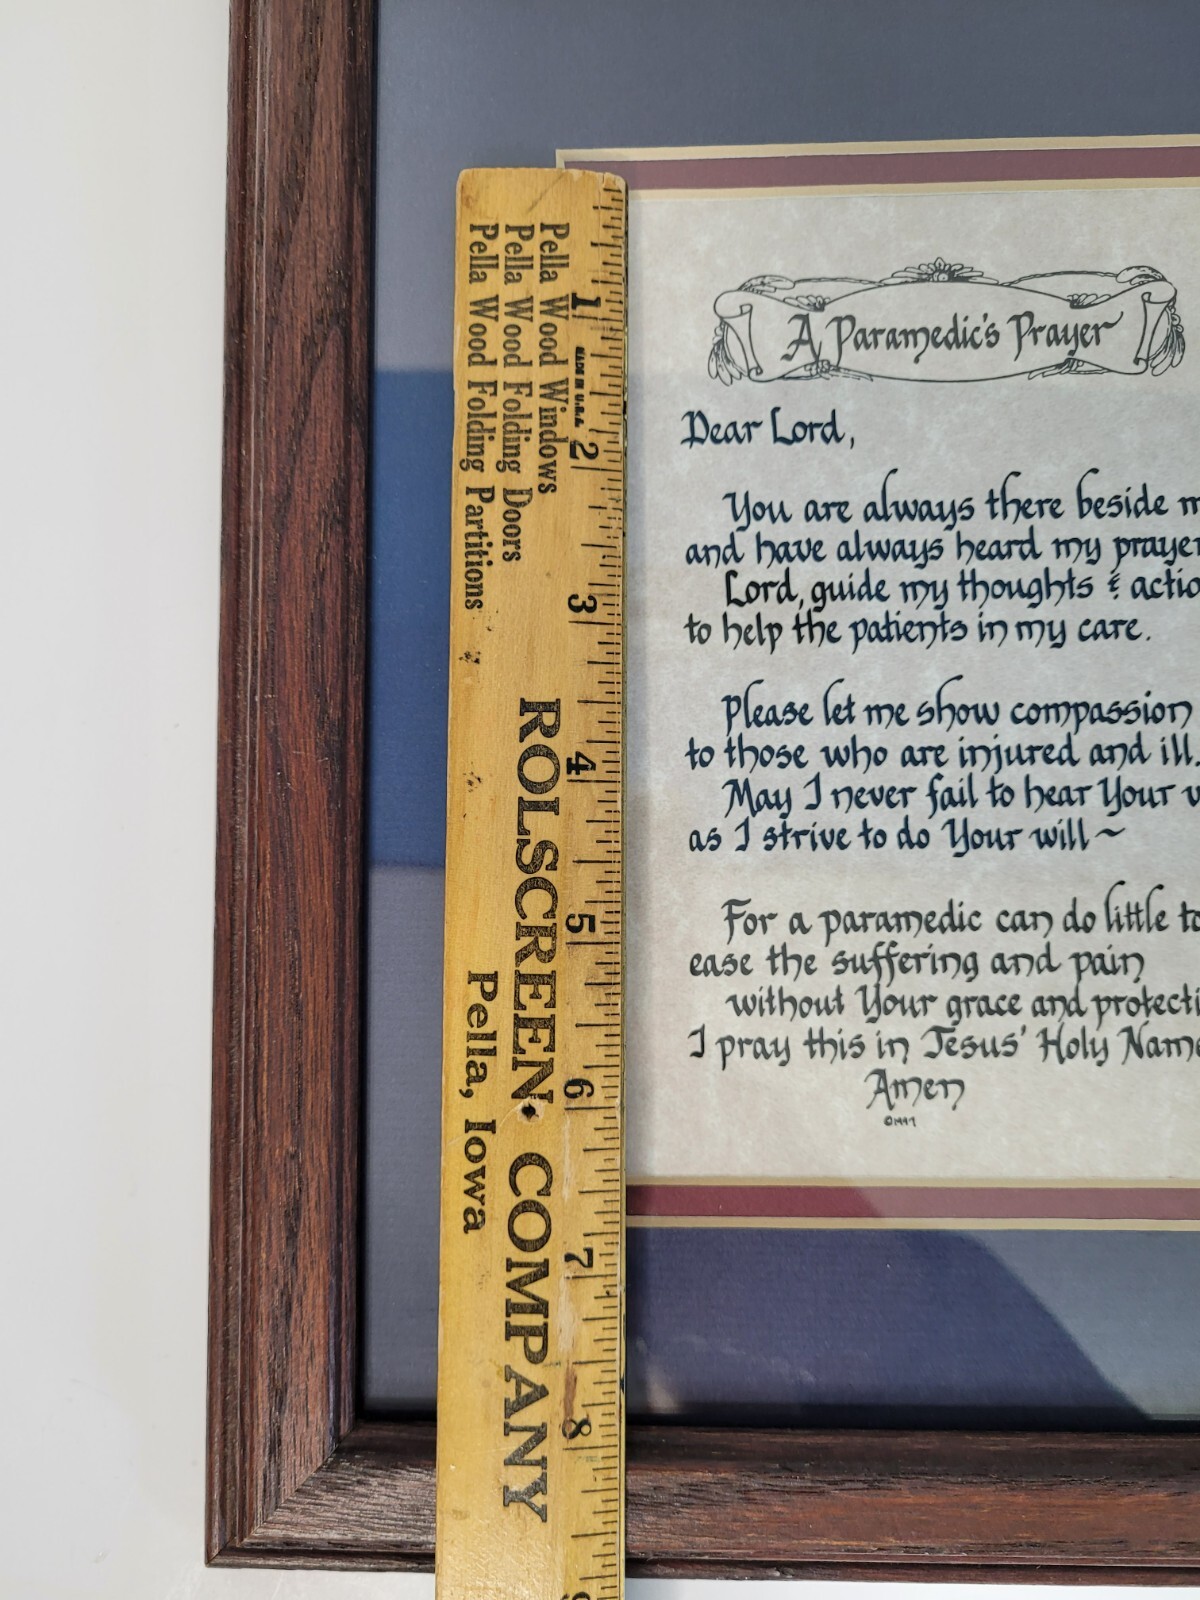 Pella Wood Windows
Pella Wood Folding Doors
Pella Wood Folding Partitions
MADE IN U.S.A.
ROLSCREEN COMPANY
Pella, Iowa
1
2
3
4
5
6
7
8
9
A Paramedic's Prayer
Dear Lord,
You are always there beside m
and have always heard my prayer
Lord, guide my thoughts & actio
to help the patients in my care.
Please let me show compassion
to those who are injured and ill.
May I never fail to hear Your v
as I strive to do Your will ~
For a paramedic can do little to
ease the suffering and pain
without Your grace and protecti
I pray this in Jesus' Holy Name
Amen
©1997